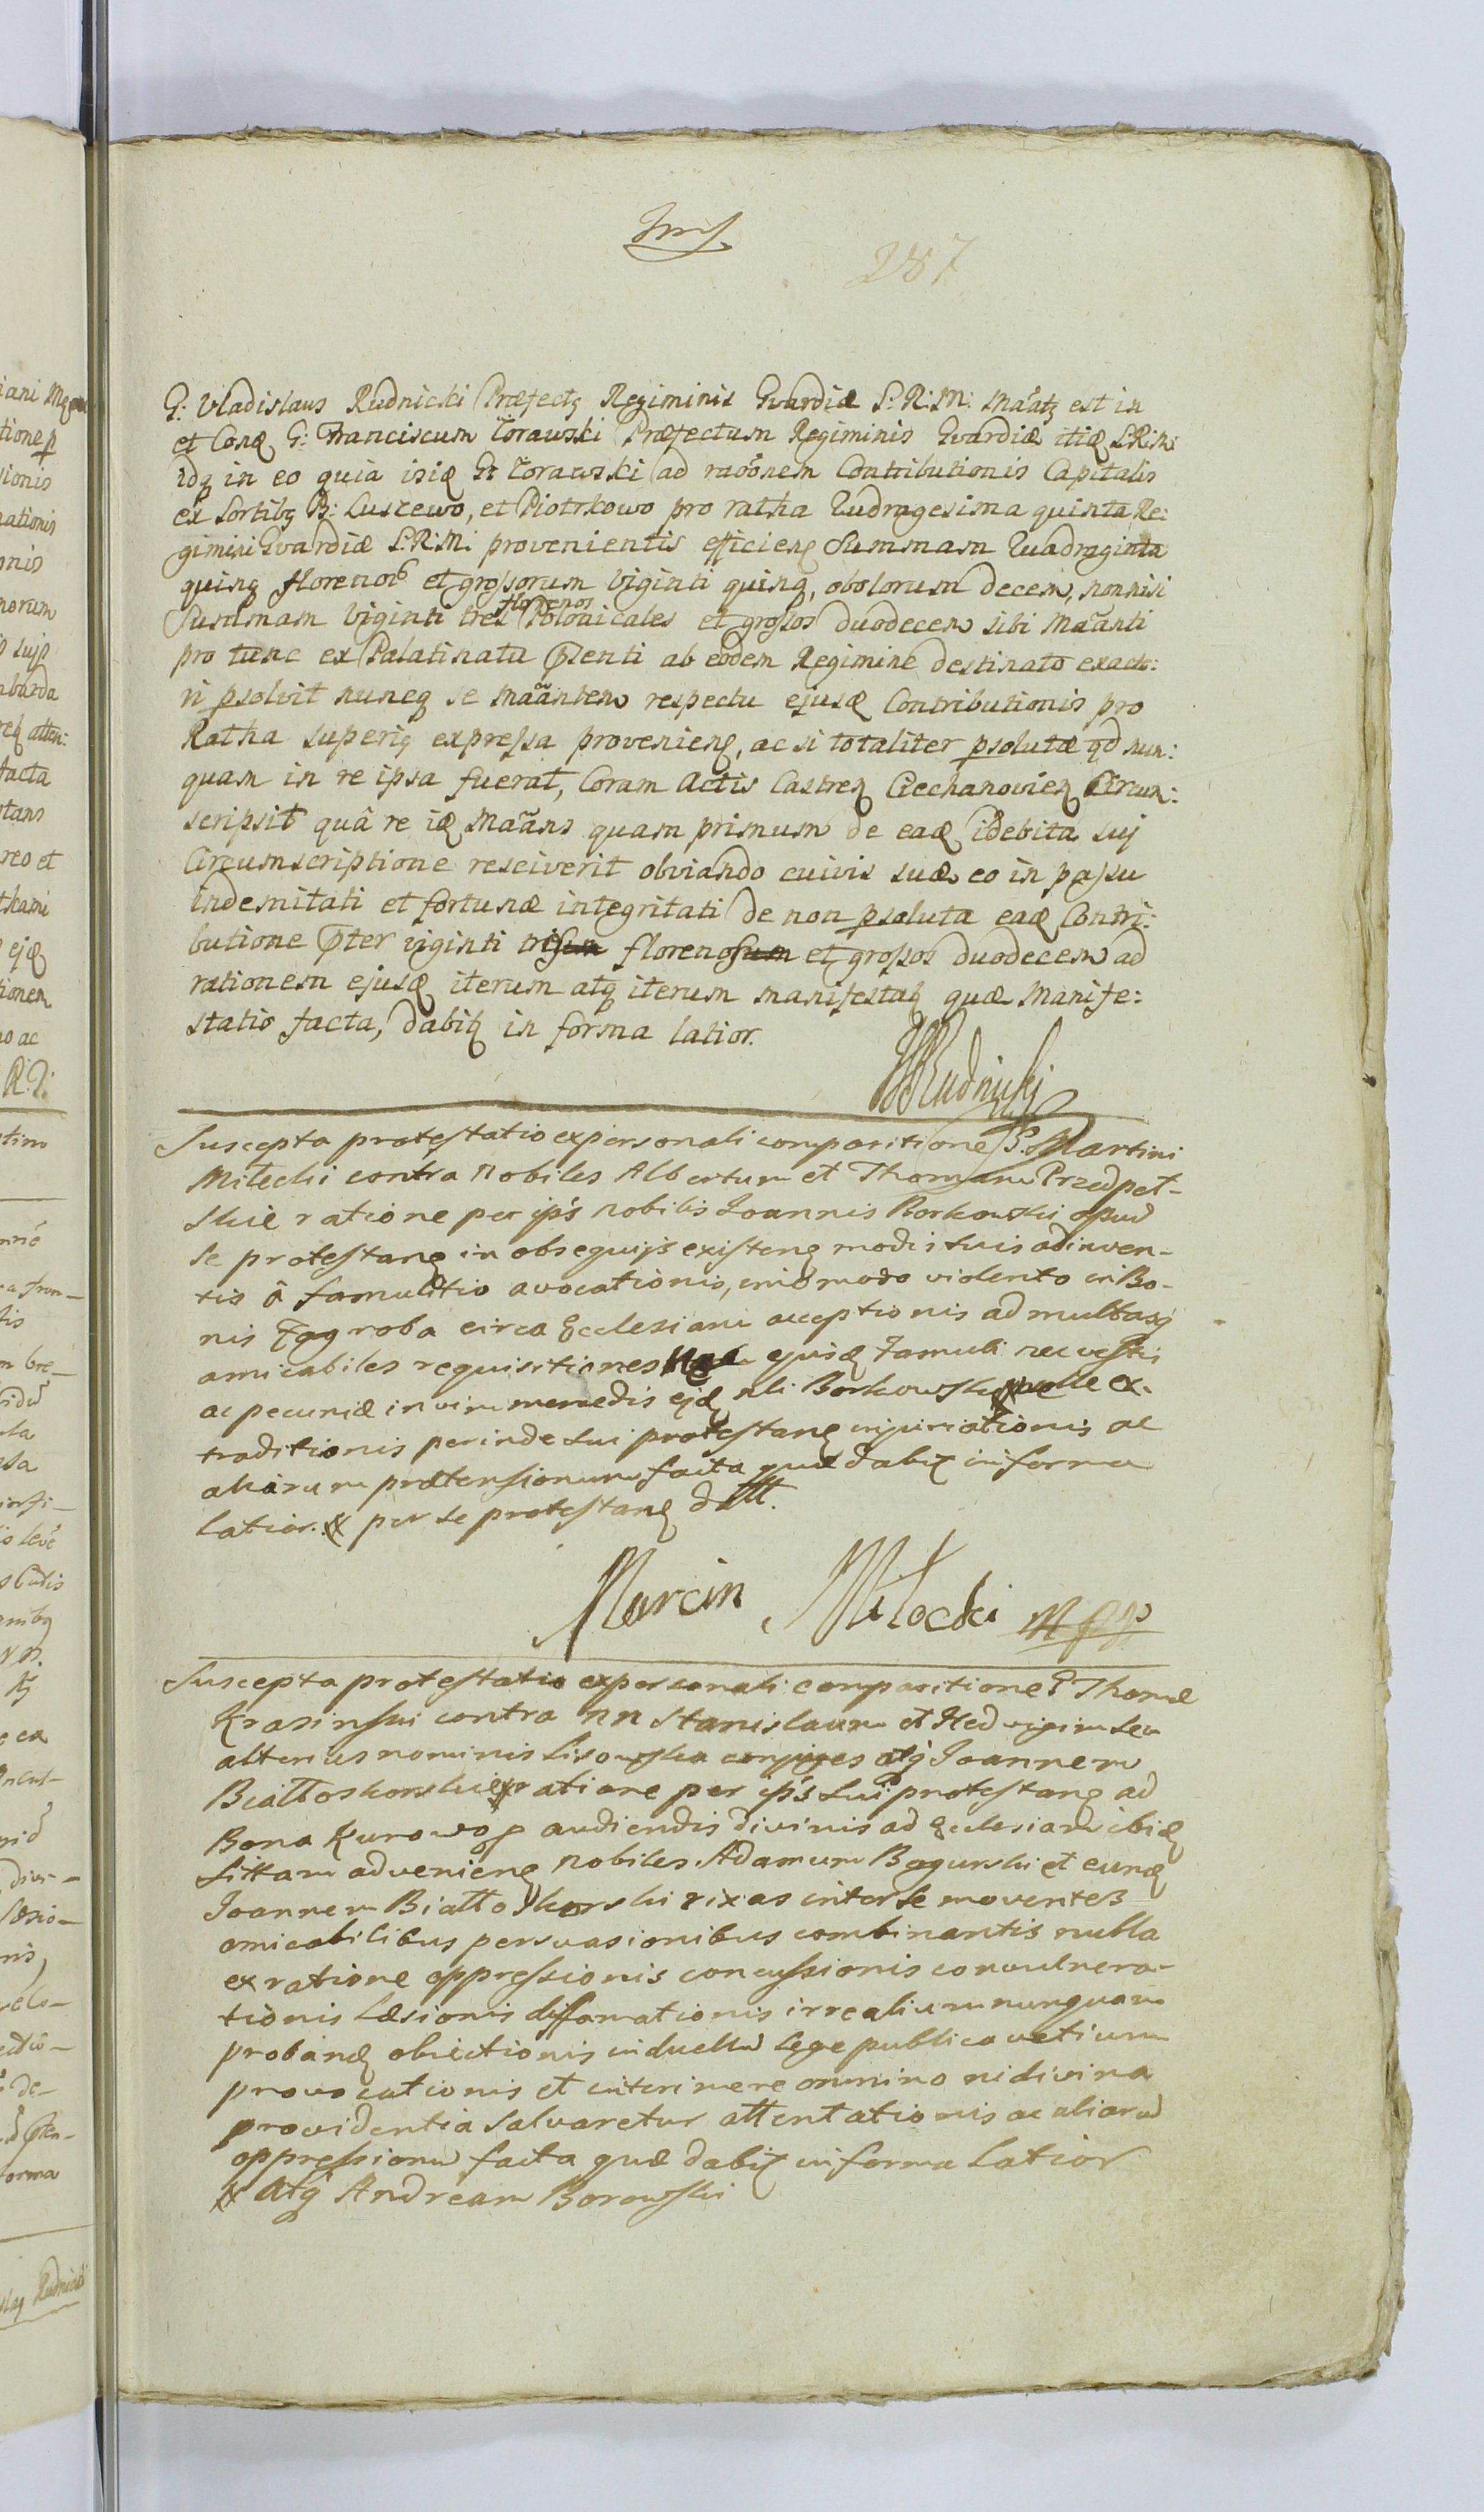 287
G: Vladislaus Rudnicki Præfectq Regiminis Gvardiæ S: R: M: Maatq est in
et Conq G: Franciscum Torawski Præfectum Regiminis Gvardiæ itiq S.R.M:
idq in eo quia isiq Gr Torawski ad raõonem Contributionis Capitalis
ex Sortibq B: Luszewo, et Piotrkowo pro ratha Quadragesima quinta Re:
gimini Gvardiæ S:R:M: provenientis efficienq Summam Quadraginta
quinq florenor et grossorum viginti quinq, obolorum decem, nonnisi
Summam viginti tres florenos Polonicales et grossos duodecem sibi Maãnti
pro tunc ex Palatinatu psenti ab eodem Regimine destinato exacto:
ri psolvit nuncq se Maãntem respectu ejusq Contributionis pro
Ratha superiq expressa provenienq, ac si totaliter psolutæ qd nun:
quam in re ipsa fuerat, Coram Actis Castren Ciechanovien Circum:
scripsit quâ re iq Maãns quam primum de eaq idebita suj
Circumscriptione resciverit obviando cuivis suæ eo in passu
indemnitati et fortunæ integritati de non psoluta eaq Contri:
butione pter viginti tris florenos et grossos duodecem ad
rationem ejusq iterum atq iterum manifestatq quæ Manife:
statio facta, dabitq in forma latior.
WRudnicki
Suscepta protestatio ex personali comparitione G. Martini
Milocki contra Nobiles Albertum et Thomam Przedpeł-
skie ratione per ips nobilis Joannis Borkowski apud
se protestanq in obsequijs existenq modis suis adinven-
tis â famulitio avocationis, imo modo violento in Bo-
nis Zagroba circa Ecclesiam acceptionis ad multasq
amicabiles requisitiones ejusq famuli nec vestis
ac pecuniæ in vim mercedis ejq nli Borkowski ex-
traditionis perinde sui protestanq injuriationis ac
aliarum prætensionum facta quæ dabit in forma
latior. per se protestanq datt.
Marcin Miłocki mpp
Suscepta protestatio ex personali comparitione G Thomæ
Krasinski contra nn Stanislaum et Hedvigim seu
alterius nominis Lisowska conjuges atq Joannem
Białłoskorskie ratione per ips sui protestanq ad
Bona Kurowo p audiendis divinis ad Ecclesiam ibiq
sittam advenienq nobiles Adamum Bagurski et eunq
Joannem Białłoskorski rixas inter se moventes
amicabilibus persuasionibus combinantis nulla
ex ratione oppressionis concussionis convulnera-
tionis læsionis diffamationis irrealium nunquam
probanq obiectionis in duellu lege publica vetitum
provocationis et interimere omnino ni divina
providentia salvaretur attentationis ac aliaru
oppressionu facta quæ dabit in forma latior
atq Andream Borowski